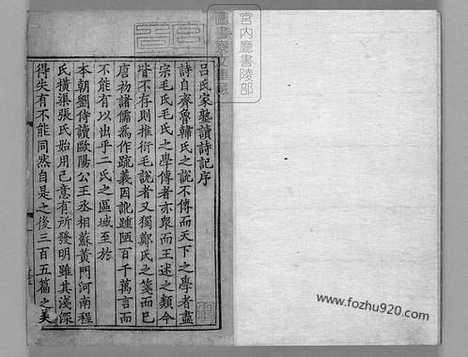 呂氏家塾讀詩記序
詩自齊魯韓氏之說不傳而天下之學者盡
宗毛氏毛氏之學傳者亦衆而王述之類今
皆不存則推衍毛說者又獨鄭氏之箋而已
唐初諸儒爲作疏義因訛踵陋百千萬言而
不能有以出乎二氏之區域至於
本朝劉侍讀歐陽公王丞相蘇黃門河南程
氏橫渠張氏始用己意有所發明雖其淺深
得失有不能同然自是之後三百五篇之美
宮內廳書陵部
www.fozhu920.com